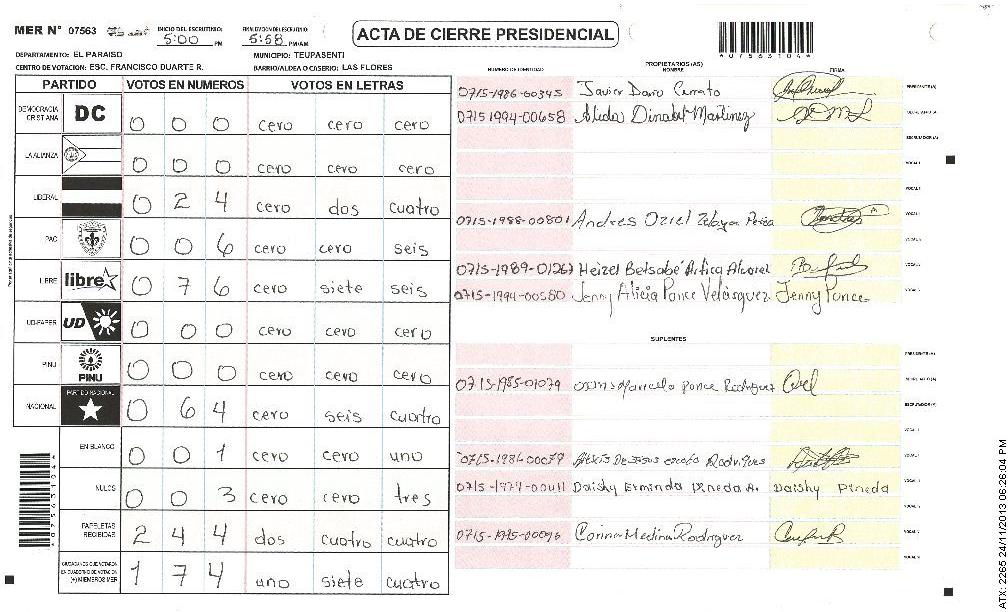 MER N° 07563 INICIO DEL ESCRUTINIO: 5:00 PM FINALIZACION DEL ESCRUTINIO: 5:58 PM/AM ACTA DE CIERRE PRESIDENCIAL
DEPARTAMENTO: EL PARAISO MUNICIPIO: TEUPASENTI
CENTRO DE VOTACION: ESC. FRANCISCO DUARTE R. BARRIO/ALDEA O CASERIO: LAS FLORES
PARTIDO VOTOS EN NUMEROS VOTOS EN LETRAS
DEMOCRACIA CRISTIANA DC 0 0 0 cero cero cero
LA ALIANZA 0 0 0 cero cero cero
LIBERAL 0 2 4 cero dos cuatro
PAC 0 0 6 cero cero seis
LIBRE libre 0 7 6 cero siete seis
UD-FAPER UD 0 0 0 cero cero cero
PINU PINU 0 0 0 cero cero cero
NACIONAL PARTIDO NACIONAL 0 6 4 cero seis cuarto
EN BLANCO 0 0 1 cero cero uno
NULOS 0 0 3 cero cero tres
PAPELETAS RECIBIDAS 2 4 4 dos cuatro cuatro
CIUDADANOS QUE VOTARON EN CUADERNO DE VOTACION (+) MIEMBROS MER 1 7 4 uno siete cuatro
PROPIETARIOS (AS)
NUMERO DE IDENTIDAD NOMBRE FIRMA
0715-1986-00345 Javier Dario PRESIDENTE (A)
0715 1994-00658 Alida Dinabel Martinez
ESCRUTADOR (A)
VOCAL I
0715-1988-00801 Andres Oziel Zelaya
0715-1989-01267 Heizel Betsabé Artica Alvarel
0715-1994-00580 Jenny Alicia Ponce Velásquez Jenny Ponce
SUPLENTES
PRESIDENTE (A)
0715-1985-01079 Marcelo Ponce Rodriguez SECRETARIO (A)
ESCRUTADOR (A)
0715-1986-00079 Alexis De Jesus Rodrigues
Daishy Erminda Pineda A. Daishy Pineda
Corina Medina Rodriguez
*07563104*
*07563104*
ATX: 2265 24/11/2013 06:26:04 PM